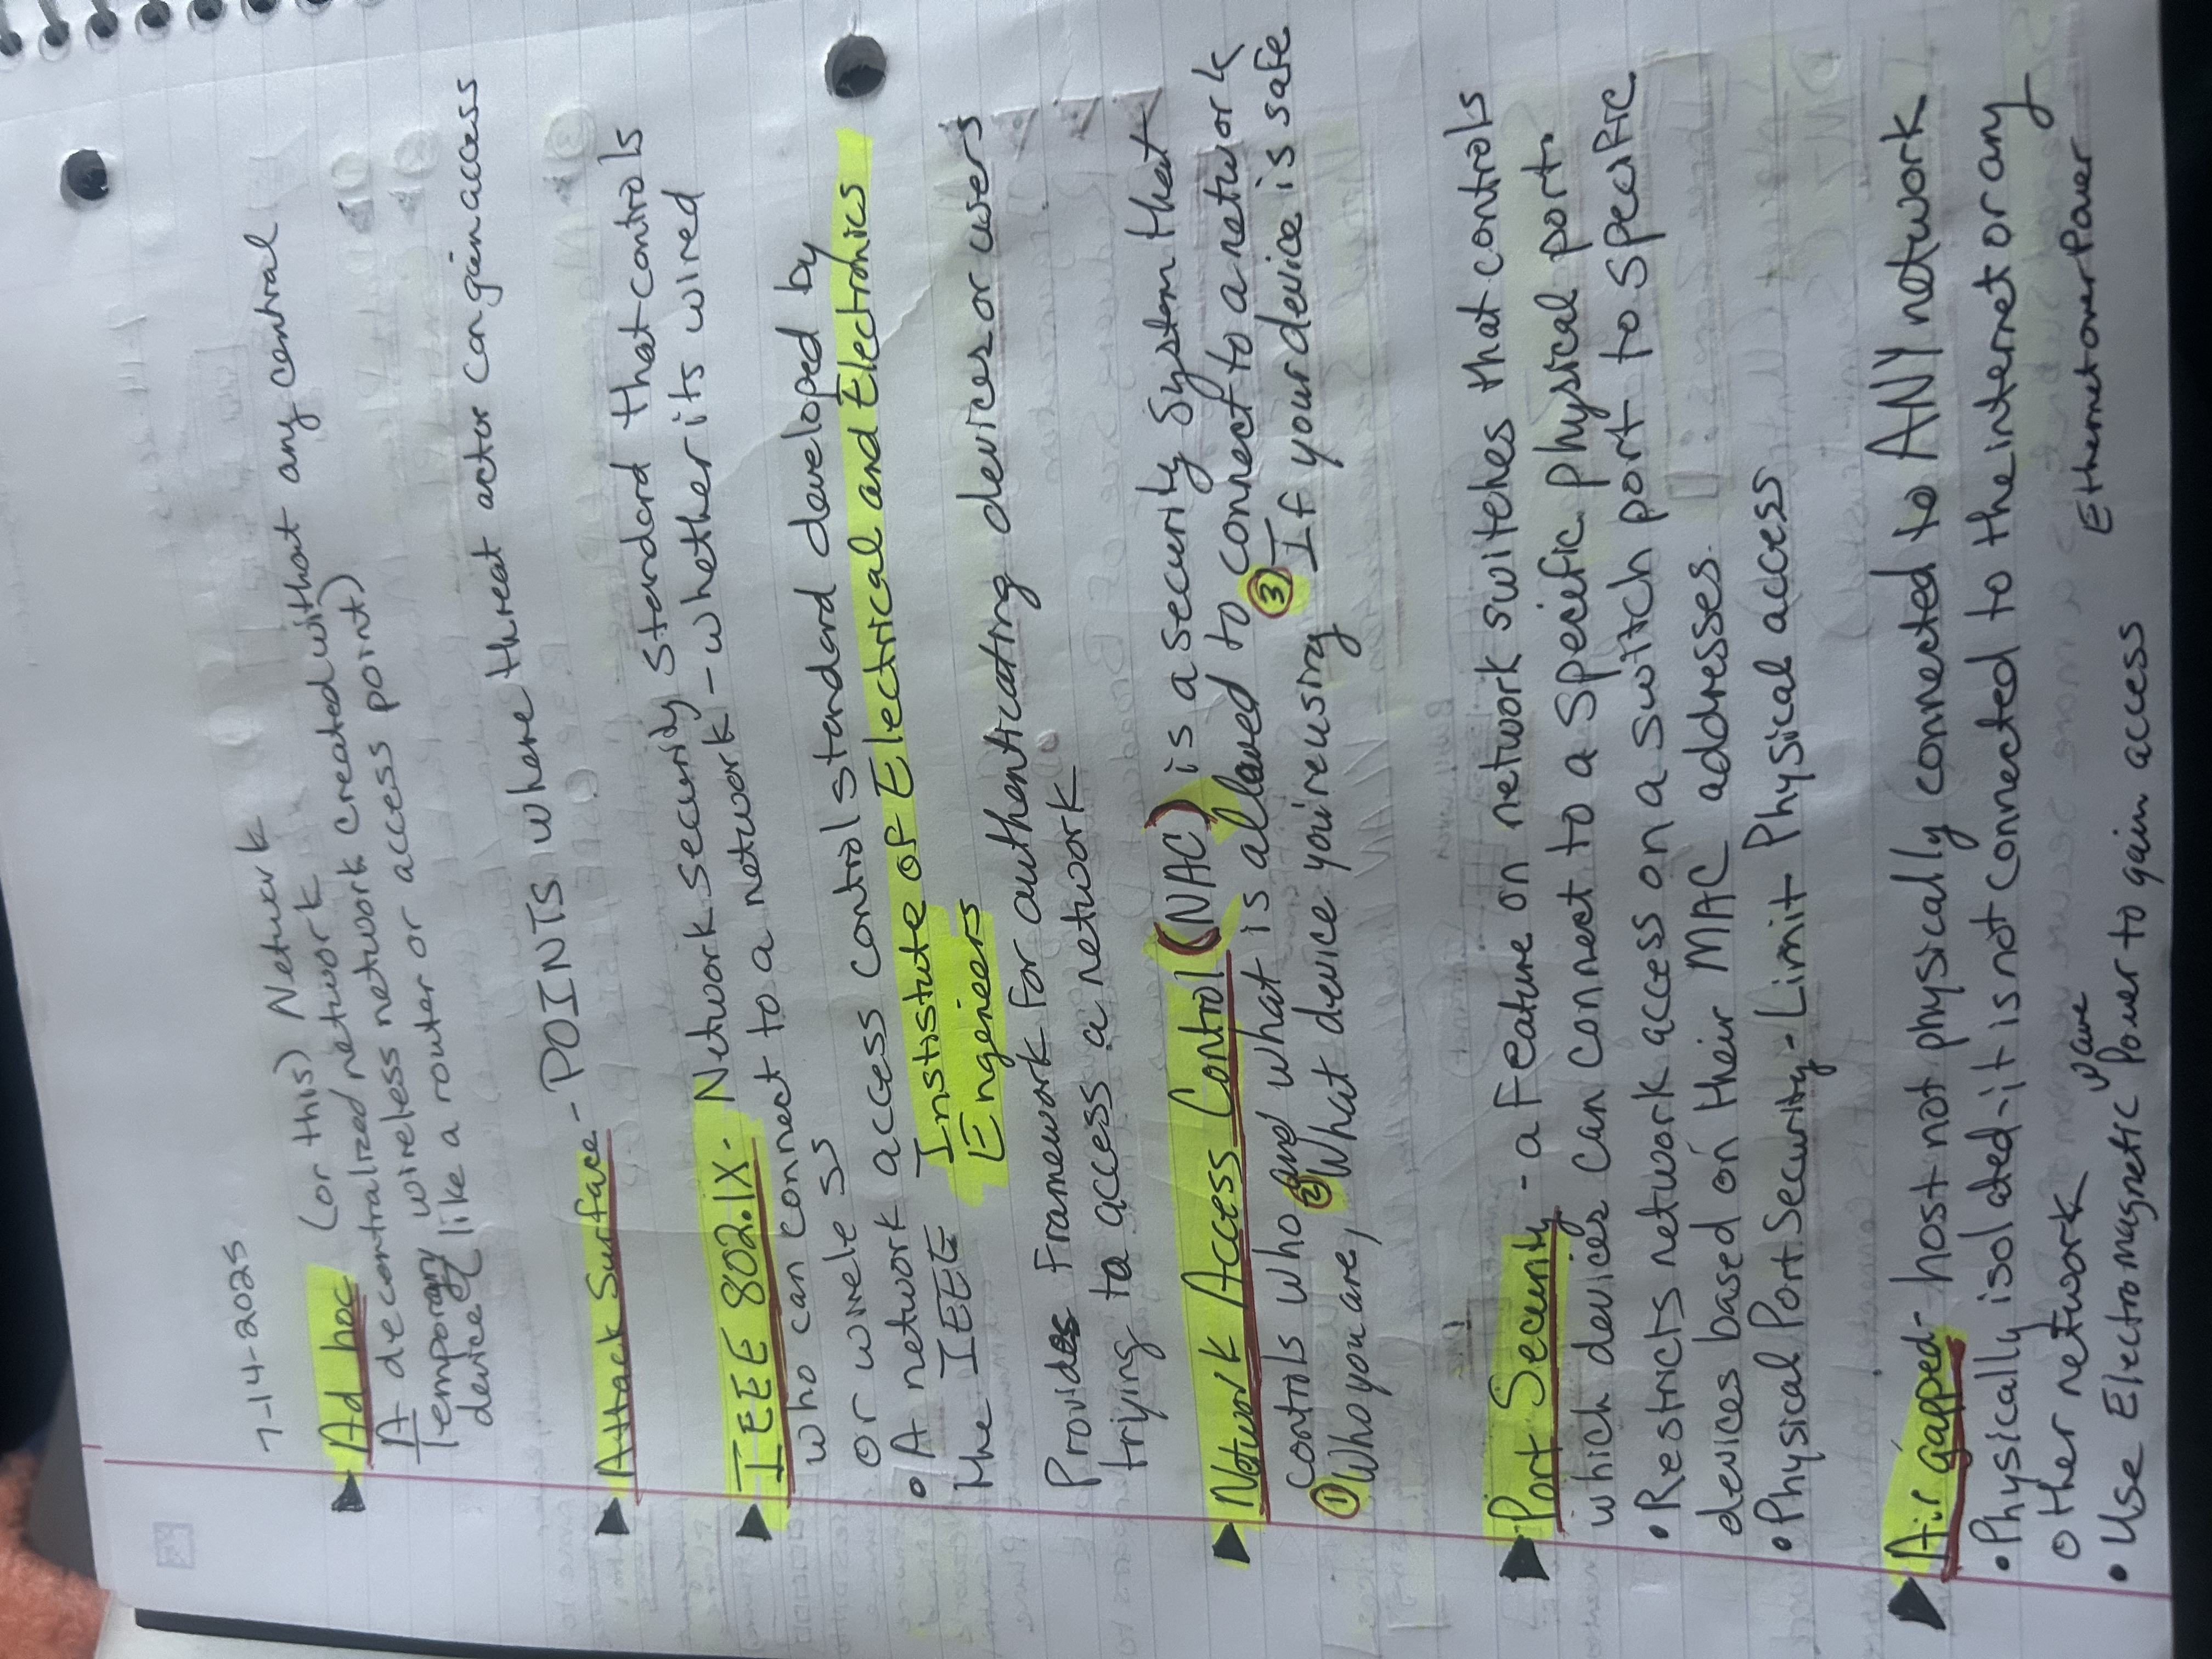 7-14-2025
Ad hoc (or this) Network
A decentralized network
Temporary wireless network created without any central
device (like a router or access point)
Attack Surface - POINTS where threat actor can gain access
IEEE 802.1X - Network security standard that controls
who can connect to a network - whether its wired
or wireless
• A network access control standard developed by
the IEEE Institstute of Electrical and Electronics
Engeneers
Provides Framework for authenticating devices or users
trying to access a network
Network Access Control (NAC) is a security system that
controls who and what is allowed to connect to a network
① Who you are, ② What device you're using ③ If your device is safe
Port Security - a feature on network switches that controls
which devices can connect to a specific physical port.
• Restricts network access on a switch port to specific
devices based on their MAC addresses.
• Physical Port Security - Limit Physical access
Air gapped - host not physically connected to ANY network
• Physically isolated - it is not connected to the internet or any
other network
wave
• Use Electromagnetic Power to gain access
Ethernet over Power